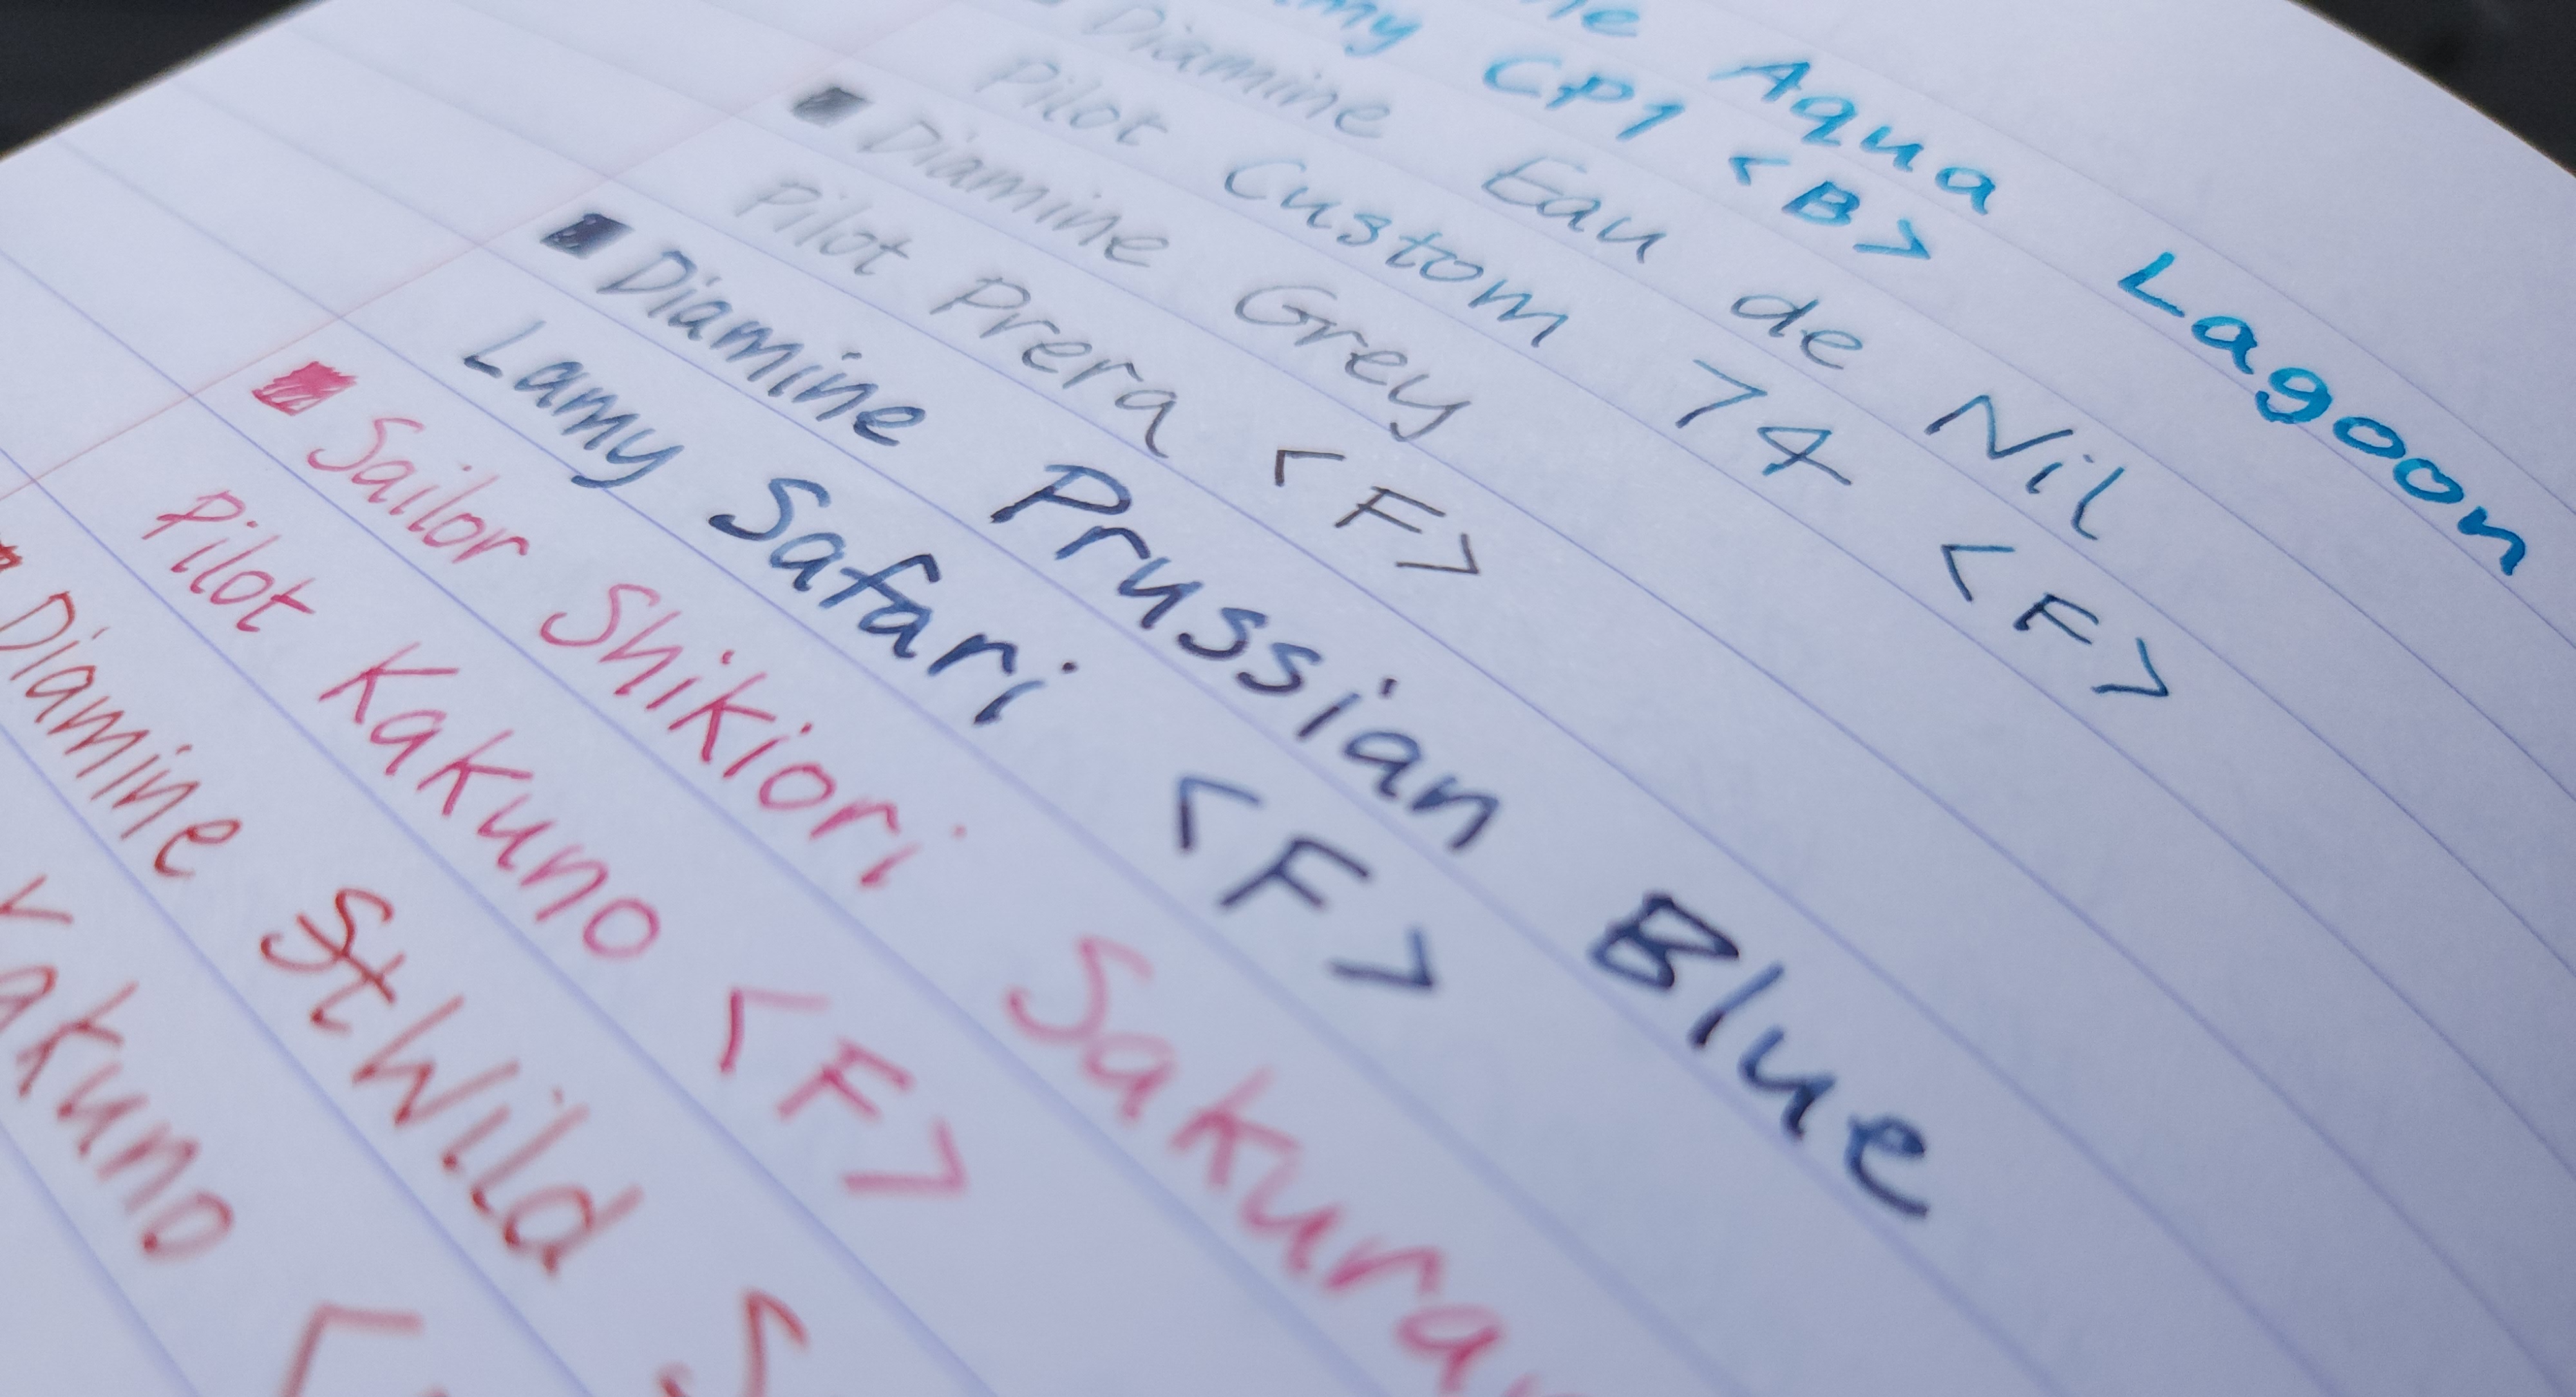 Aqua Lagoon
CP1 <B>
Diamine Eau de Nil
Pilot Custom 74 <F>
Diamine Grey
Pilot Prera <F>
Diamine Prussian Blue
Lamy Safari <F>
Sailor Shikiori
Pilot Kakuno <F>
Diamine